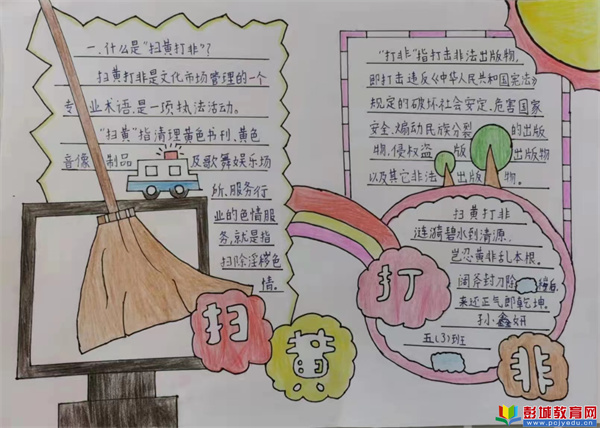 一.什么是“扫黄打非”?
扫黄打非是文化市场管理的一个
专业术语,是一项执法活动。
“扫黄”指清理黄色书刊,黄色
音像制品及歌舞娱乐场
所、服务行
业的色情服
务,就是指
扫除淫秽色
情。
“打非”指打击非法出版物,
即打击违反《中华人民共和国宪法》
规定的破坏社会安定、危害国家
安全、煽动民族分裂的出版
物,侵权盗版出版物
以及其它非法出版物。
扫黄打非
涟漪碧水到清源,
岂忍黄非乱本根。
阔斧封刀除
来还正气郎乾坤。
孙鑫妍
五(3)班
扫
黄
打
非
彭城教育网
www.pcjyedu.cn